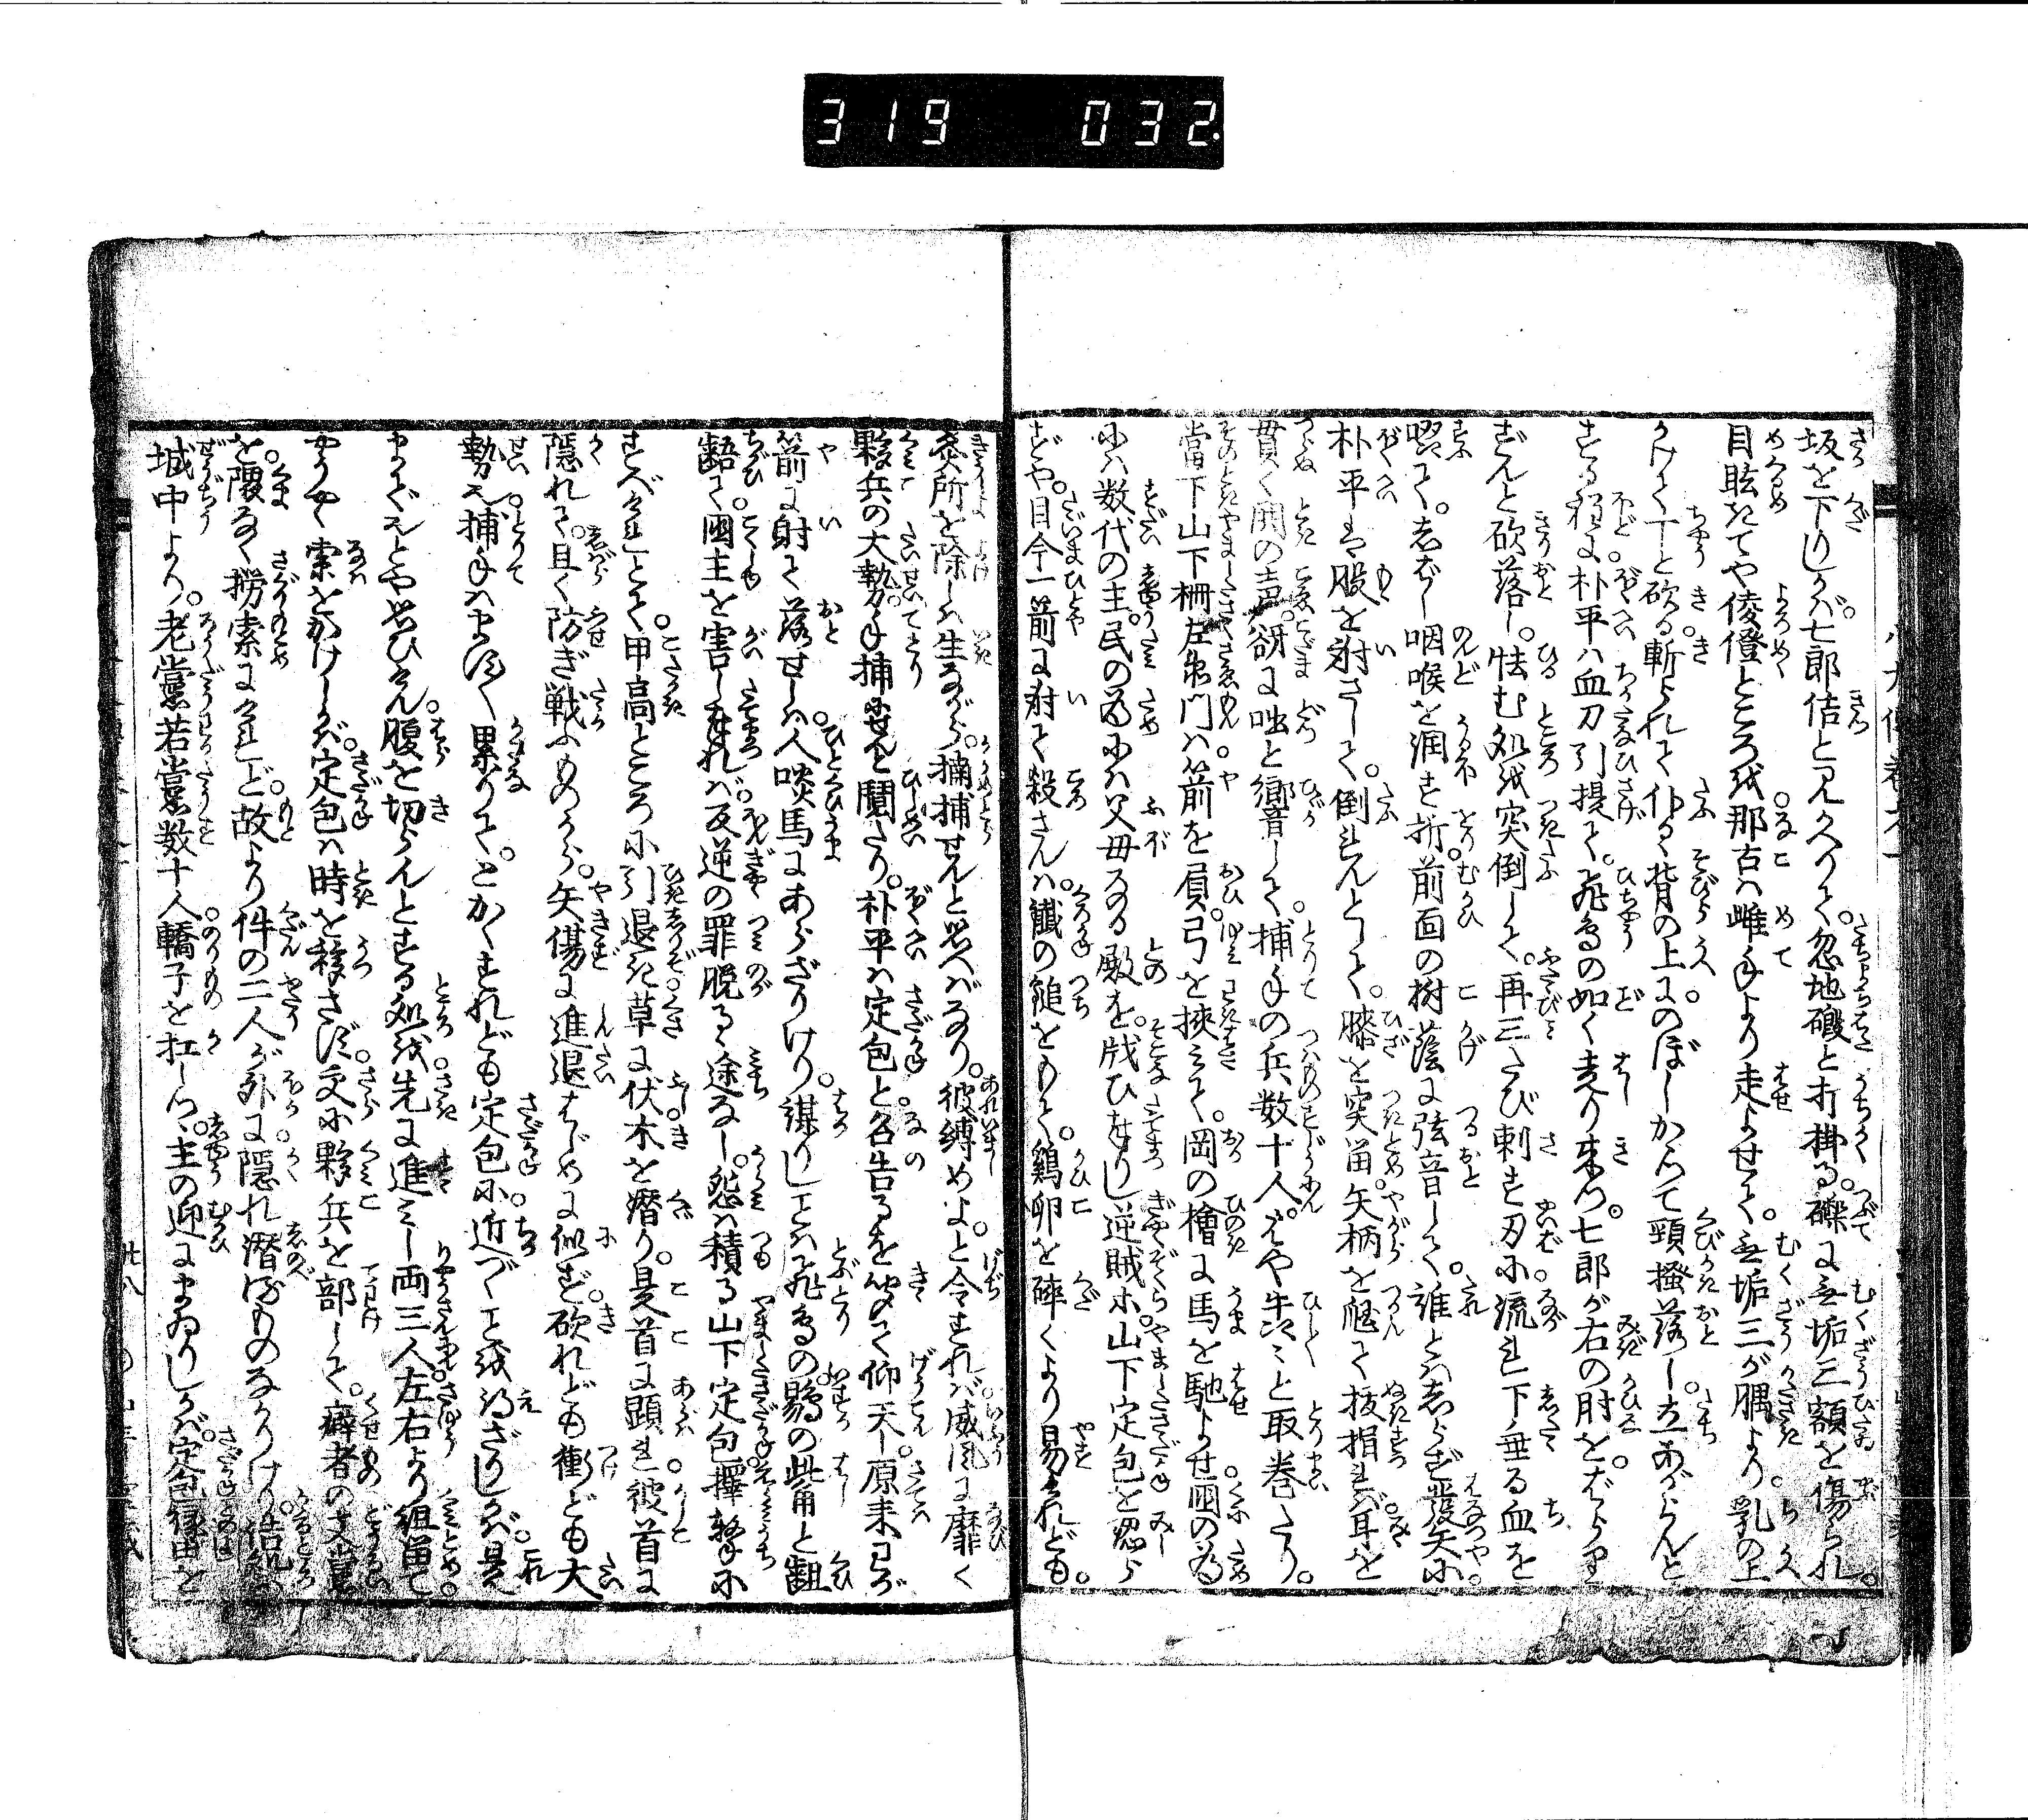 319 032
坂を下りしかば。七郎佶と見かへりて。忽地礑と打掛る。礫に无垢三額を傷られ。
目眩きてや倰僜ところを那古は雌手より走よせて。无垢三が腢より。乳の上
かけて丁と砍る。斬られて仆るゝ背の上に。のぼしかゝつて頸掻落し。立あがらんと
する程に。朴平は血刀引提て。飛鳥の如く走り来つ。七郎が右の肘を。ばらり
ずんと砍落し。怯む処を突倒して。再三たび刺す刃に流れ下垂る血を
啜て。しばし咽喉を潤す折。前面の樹蔭に弦音して。誰とはしらず發矢に
朴平は股を射さして。倒れんとして。膝を突畄。矢柄を爴て抜捐れば。耳を
貫く鬨の声。谺に咄と響して。捕手の兵数十人。はや犇々と取巻たり。
當下山下柵左衛門は。箭を屓。弓を挾みて。岡の檜に馬を馳よせ。国の為
には数代の主。民の為には父母なる殿を。戕ひまゐりし逆賊等。山下定包を認ら
ずや。目今一箭に射て殺さんは。鐵の鎚をもて。鶏卵を砕くより易けれども。
灸所を除しは生ながら。搦捕せんと思へばなり。彼縛めよ。と令すれば。威風に靡く
夥兵の大勢。手捕にせんと鬩たり。朴平は定包と。名告るを听て仰天し。原来わが
箭に射て落せしは。人啖馬にあらざりけり。謀りしことは飛鳥の。鶍の觜と齟
齬て。國主を害し奉れば。反逆の罪脱るゝ途なし。怨は積る山下定包。撃手に
すべけれ」とて。甲高ところに引退き。草に伏。木を潜り。是首に顕れ。彼首に
隠れて。且く防ぎ戦ふものから。矢傷に進退はじめに似ず。砍れども衝ども大
勢也。捕手はます〳〵累りて。とかくすれども定包に。近づくことを得ざりしかば。是
までぞとや思ひけん。腹を切らんとする処を。先に進みし両三人。左右より組畄て。
やうやく索をかけしかば。定包は時を移さず。更に夥兵を部して。癖者の支黨
を。隈なく撈索にけれ」ど。故より件の二人が外に。隠れ潜ぶものなかりけり。浩処に
城中より。老黨若黨数十人。轎子を扛しつゝ。主の迎にまゐりしかば。定包縁由を